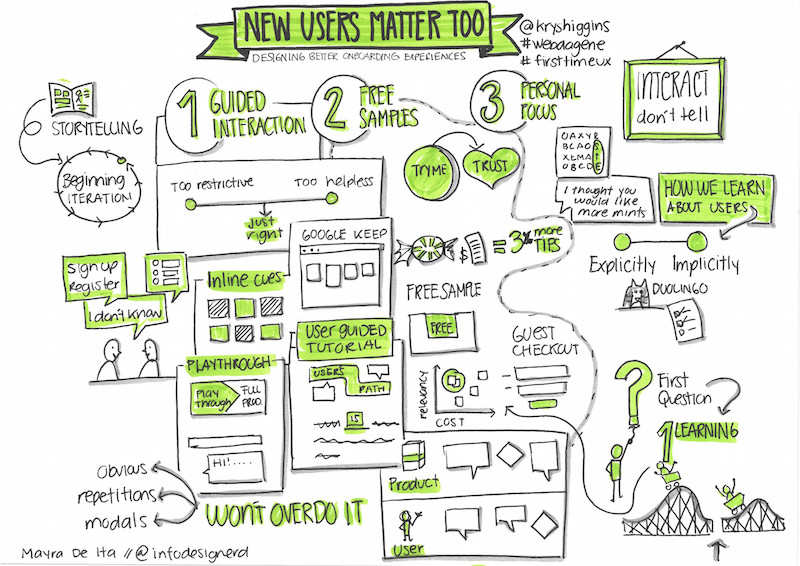 NEW USERS MATTER TOO
DESIGNING BETTER ONBOARDING EXPERIENCES
@kryshiggins
#webdagene
#firsttimeux
STORYTELLING
Beginning
ITERATION
1 GUIDED
INTERACTION
TOO restrictive
TOO helpless
just
right
2 FREE
SAMPLES
3 PERSONAL
FOCUS
INTERACT
don't tell
TRY ME
TRUST
OAXYR
BCLAOS
XEMAT
OBCDE
I thought you
would like
more mints
HOW WE LEARN
ABOUT USERS
Explicitly
Implicitly
DUOLINGO
$
= 3% more
TIPS
GOOGLE KEEP
Inline cues
sign up
register
I don't know
FREE SAMPLE
FREE
GUEST
CHECKOUT
relevancy
COST
User GUIDED
TUTORIAL
USERS
PATH
15
PLAYTHROUGH
Play
Through
FULL
PROD.
HI!....
Obvious
repetitions
modals
WON'T OVERDO IT
Product
User
?
First
Question
1 LEARNING
Mayra De Ita // @infodesignerd